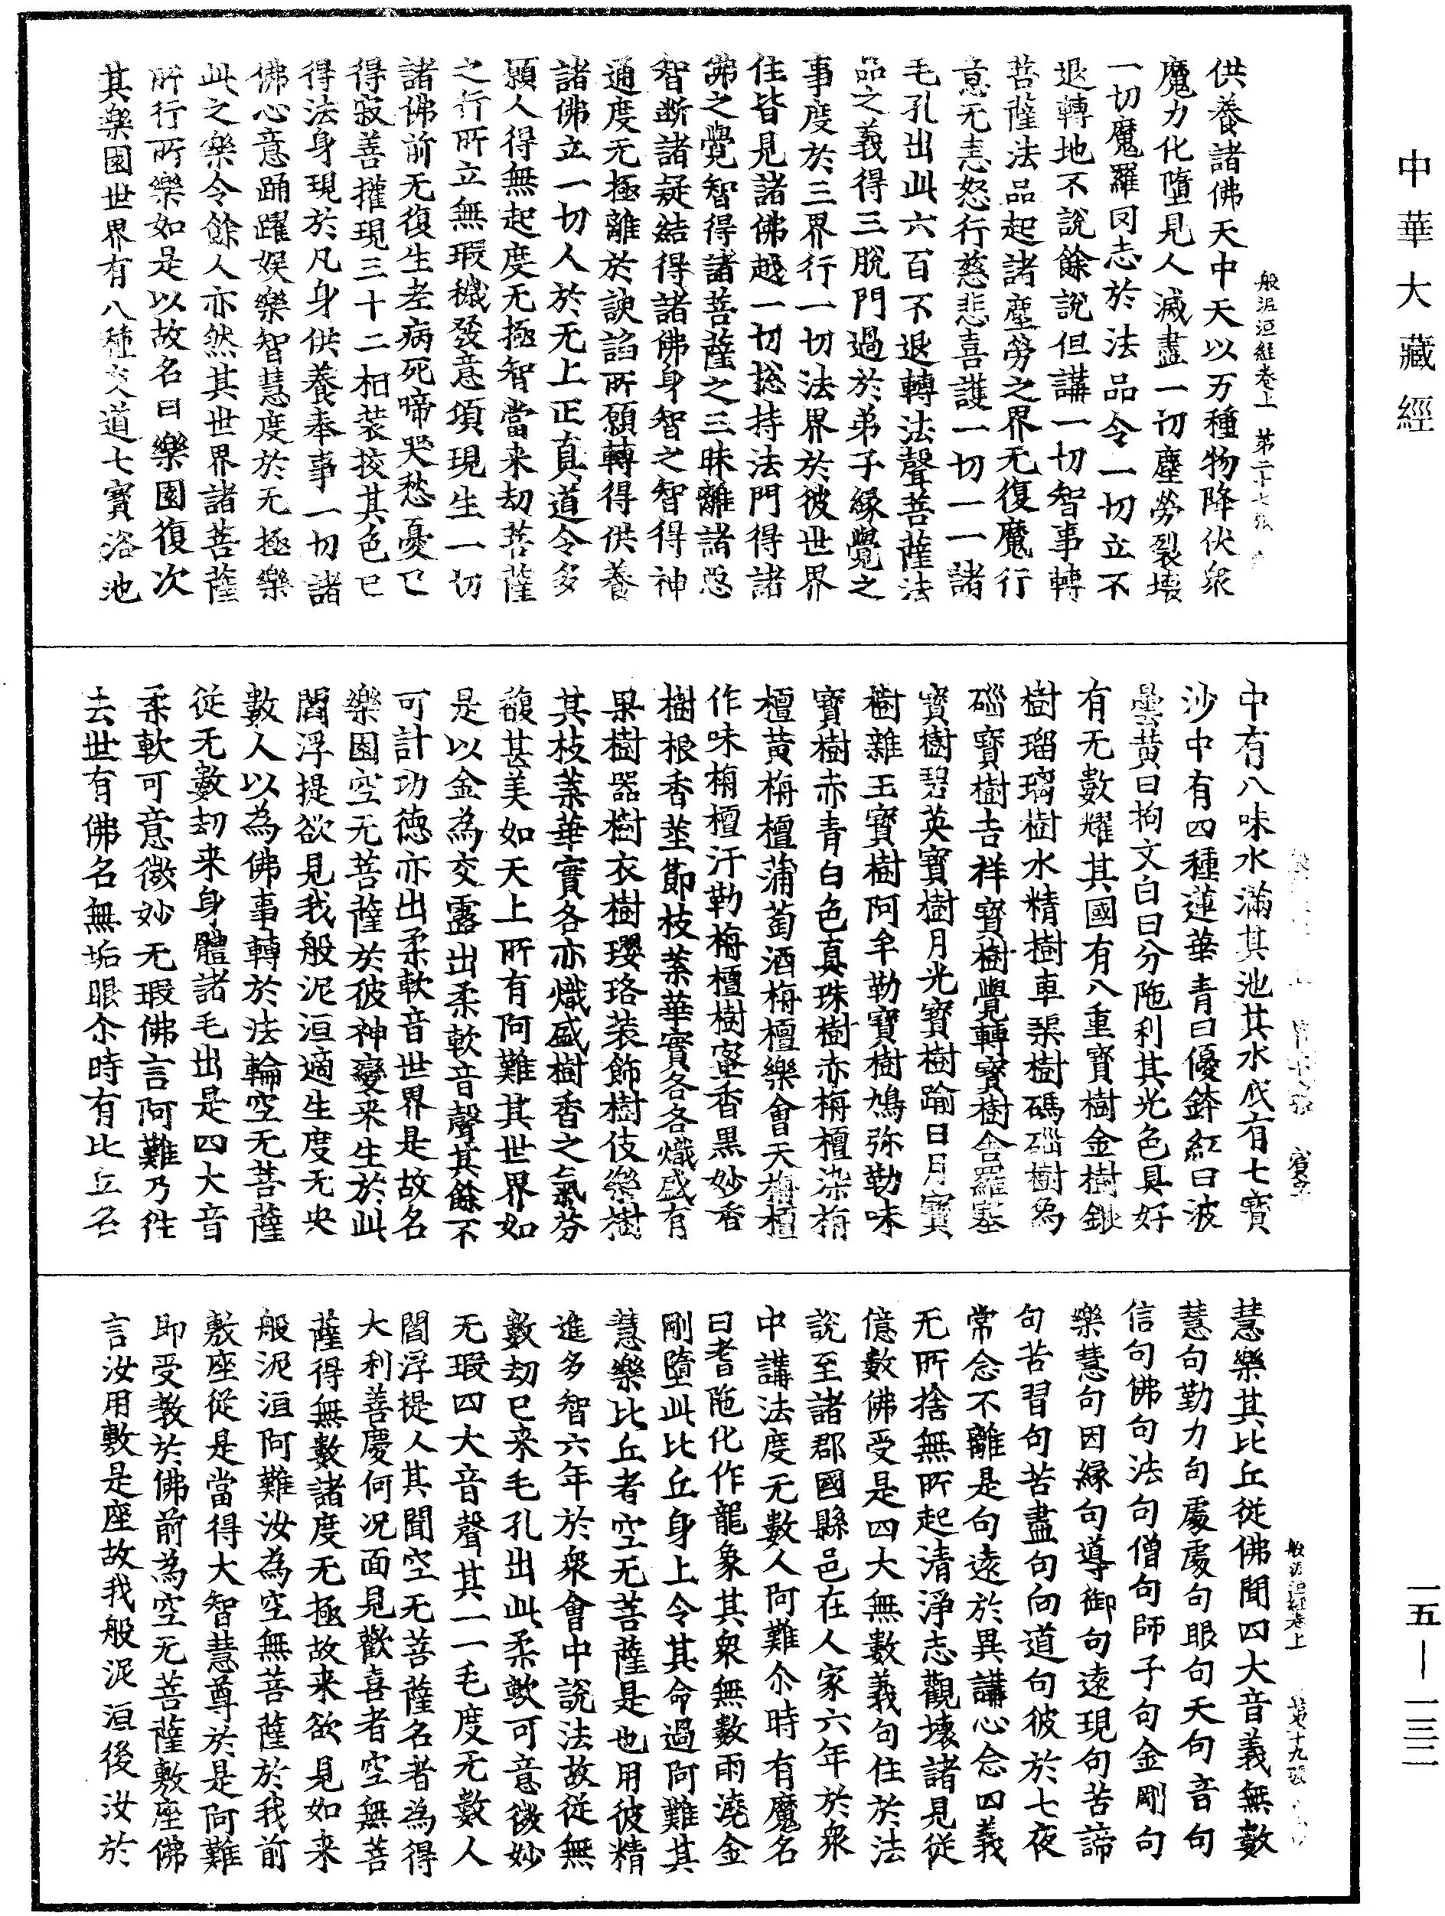 中華大藏經
般泥洹經卷上 第二十七張
供養諸佛天中天以万種物降伏衆
魔力化墮見人滅盡一切塵勞裂壞
一切魔羅罔志於法品令一切立不
退轉地不說餘說但講一切智事轉
菩薩法品起諸塵勞之界无復魔行
意无恚怒行慈悲喜護一切一一諸
毛孔出此六百不退轉法聲菩薩法
品之義得三脫門過於弟子緣覺之
事度於三界行一切法界於彼世界
住皆見諸佛越一切捴持法門得諸
佛之覺智得諸菩薩之三昧離諸惡
智斷諸疑結得諸佛身智之智得神
通度无極離於諛諂所願轉得供養
諸佛立一切人於无上正真道令多
願人得無起度无極智當来劫菩薩
之行所立無瑕穢發意項現生一切
諸佛前无復生老病死啼哭愁憂已
得寂善攉現三十二相裝挍其色已
得法身現於凡身供養奉事一切諸
佛心意踊躍娛樂智慧度於无極樂
此之樂令餘人亦然其世界諸菩薩
所行所樂如是以故名曰樂園復次
其樂園世界有八種交道七寶浴池
中有八味水滿其池其水底有七寶
沙中有四種蓮華青曰優鉢紅曰波
曇黃曰拘文白曰分陁利其光色具好
有无數耀其國有八重寶樹金樹銀
樹瑠璃樹水精樹車渠樹碼碯樹為
碯寶樹吉祥寶樹覺轉寶樹金羅塞
寶樹碧英寶樹月光寶樹踰日月寶
樹雜玉寶樹阿牟勒寶樹鳩弥勒味
寶樹赤青白色真珠樹赤栴檀染栴
檀黃栴檀蒲萄酒栴檀樂會天栴檀
作味栴檀汗勒栴檀樹蜜香黑妙香
樹根香莖節枝葉華實各各熾盛有
果樹器樹衣樹瓔珞装飾樹伎樂樹
其枝葉華實各亦熾盛樹香之氣芬
馥甚美如天上所有阿難其世界如
是以金為交露出柔軟音聲其餘不
可計功德亦出柔軟音世界是故名
樂園空无菩薩於彼神變来生於此
閻浮提欲見我般泥洹適生度无央
數人以為佛事轉於法輪空无菩薩
從无數劫来身體諸毛出是四大音
柔軟可意微妙无瑕佛言阿難乃往
去世有佛名無垢眼尒時有比丘名
般泥洹經卷上 第十九張
慧樂其比丘從佛聞四大音義無數
慧句勤力句處處句眼句天句音句
信句佛句法句僧句師子句金剛句
樂慧句因緣句導御句遠現句苦諦
句苦習句苦盡句向道句彼於七夜
常念不離是句遠於異講心念四義
无所捨無所起清淨志觀壞諸見從
億數佛受是四大無數義句住於法
說至諸郡國縣邑在人家六年於衆
中講法度无數人阿難尒時有魔名
曰耆陁化作龍象其衆無數雨澆金
剛墮此比丘身上令其命過阿難其
慧樂比丘者空无菩薩是也用彼精
進多智六年於衆會中說法故從無
數劫已来毛孔出此柔軟可意微妙
无瑕四大音聲其一一毛度无數人
閻浮提人其聞空无菩薩名者為得
大利善慶何況面見歡喜者空無菩
薩得無數諸度无極故来欲見如来
般泥洹阿難汝為空無菩薩於我前
敷座從是當得大智慧尊於是阿難
即受教於佛前為空无菩薩敷座佛
言汝用敷是座故我般泥洹後汝於
一五—一三二